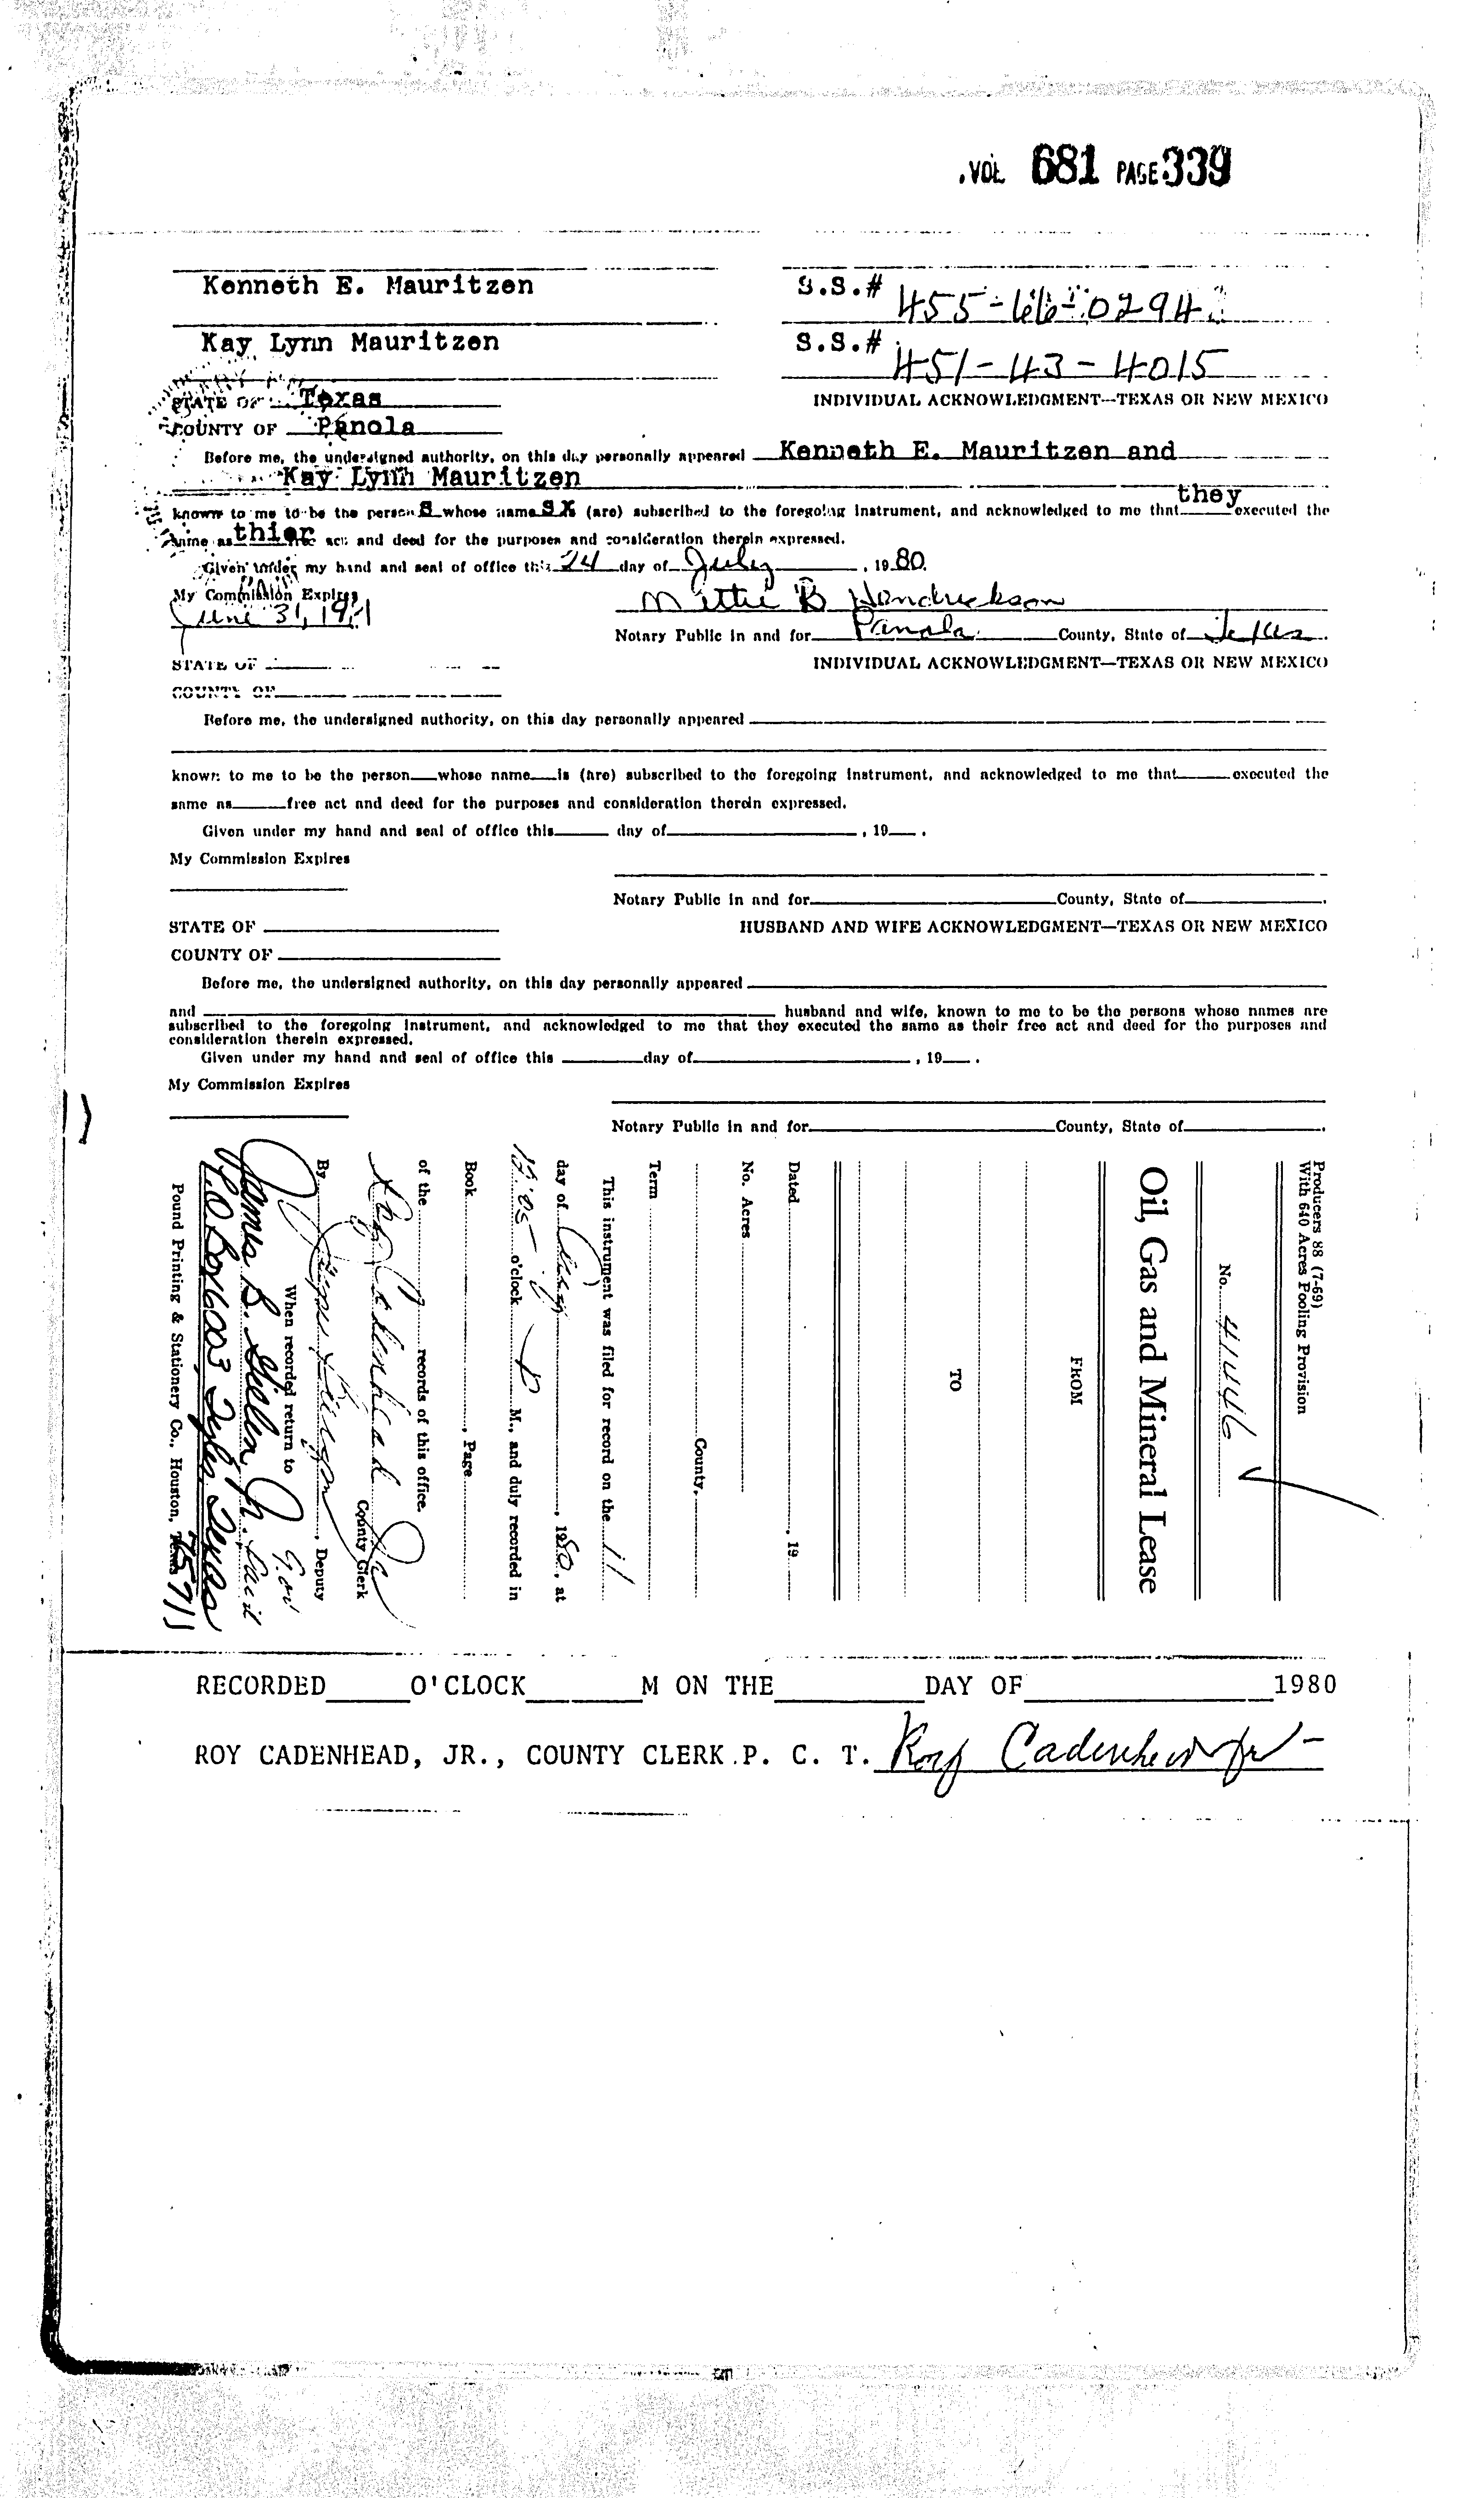 VOL 681 PAGE 339
Kenneth E. Mauritzen S.S.# 455-66-0294
Kay Lynn Mauritzen S.S.# 451-43-4015
STATE OF Texas INDIVIDUAL ACKNOWLEDGMENT—TEXAS OR NEW MEXICO
COUNTY OF Panola
Before me, the undersigned authority, on this day personally appeared Kenneth E. Mauritzen and
Kay Lynn Mauritzen
known to me to be the person s whose name s X (are) subscribed to the foregoing instrument, and acknowledged to me that they executed the
same as thier free act and deed for the purposes and consideration therein expressed.
Given under my hand and seal of office this 24 day of July, 1980.
My Commission Expires
June 31, 19
Mittie B Hendrickson
Notary Public in and for Panola County, State of Texas.
STATE OF INDIVIDUAL ACKNOWLEDGMENT—TEXAS OR NEW MEXICO
COUNTY OF
Before me, the undersigned authority, on this day personally appeared
known to me to be the person whose name is (are) subscribed to the foregoing instrument, and acknowledged to me that executed the
same as free act and deed for the purposes and consideration therein expressed.
Given under my hand and seal of office this day of , 19 .
My Commission Expires
Notary Public in and for County, State of .
STATE OF HUSBAND AND WIFE ACKNOWLEDGMENT—TEXAS OR NEW MEXICO
COUNTY OF
Before me, the undersigned authority, on this day personally appeared
and husband and wife, known to me to be the persons whose names are
subscribed to the foregoing instrument, and acknowledged to me that they executed the same as their free act and deed for the purposes and
consideration therein expressed.
Given under my hand and seal of office this day of , 19 .
My Commission Expires
Notary Public in and for County, State of .
Producers 88 (7-69)
With 640 Acres Pooling Provision
No. 41446
Oil, Gas and Mineral Lease
FROM
TO
Dated , 19
No. Acres
County,
Term
This instrument was filed for record on the 11
day of Aug, 1980, at
o'clock P M., and duly recorded in
Book , Page
of the records of this office.
Roy Cadenhead Jr
County Clerk
By , Deputy
When recorded return to
James B. Jr.
P.O. Box 6003 Tyler Texas
75711
Pound Printing & Stationery Co., Houston, Texas
RECORDED O'CLOCK M ON THE DAY OF 1980
ROY CADENHEAD, JR., COUNTY CLERK P. C. T. Roy Cadenhead Jr